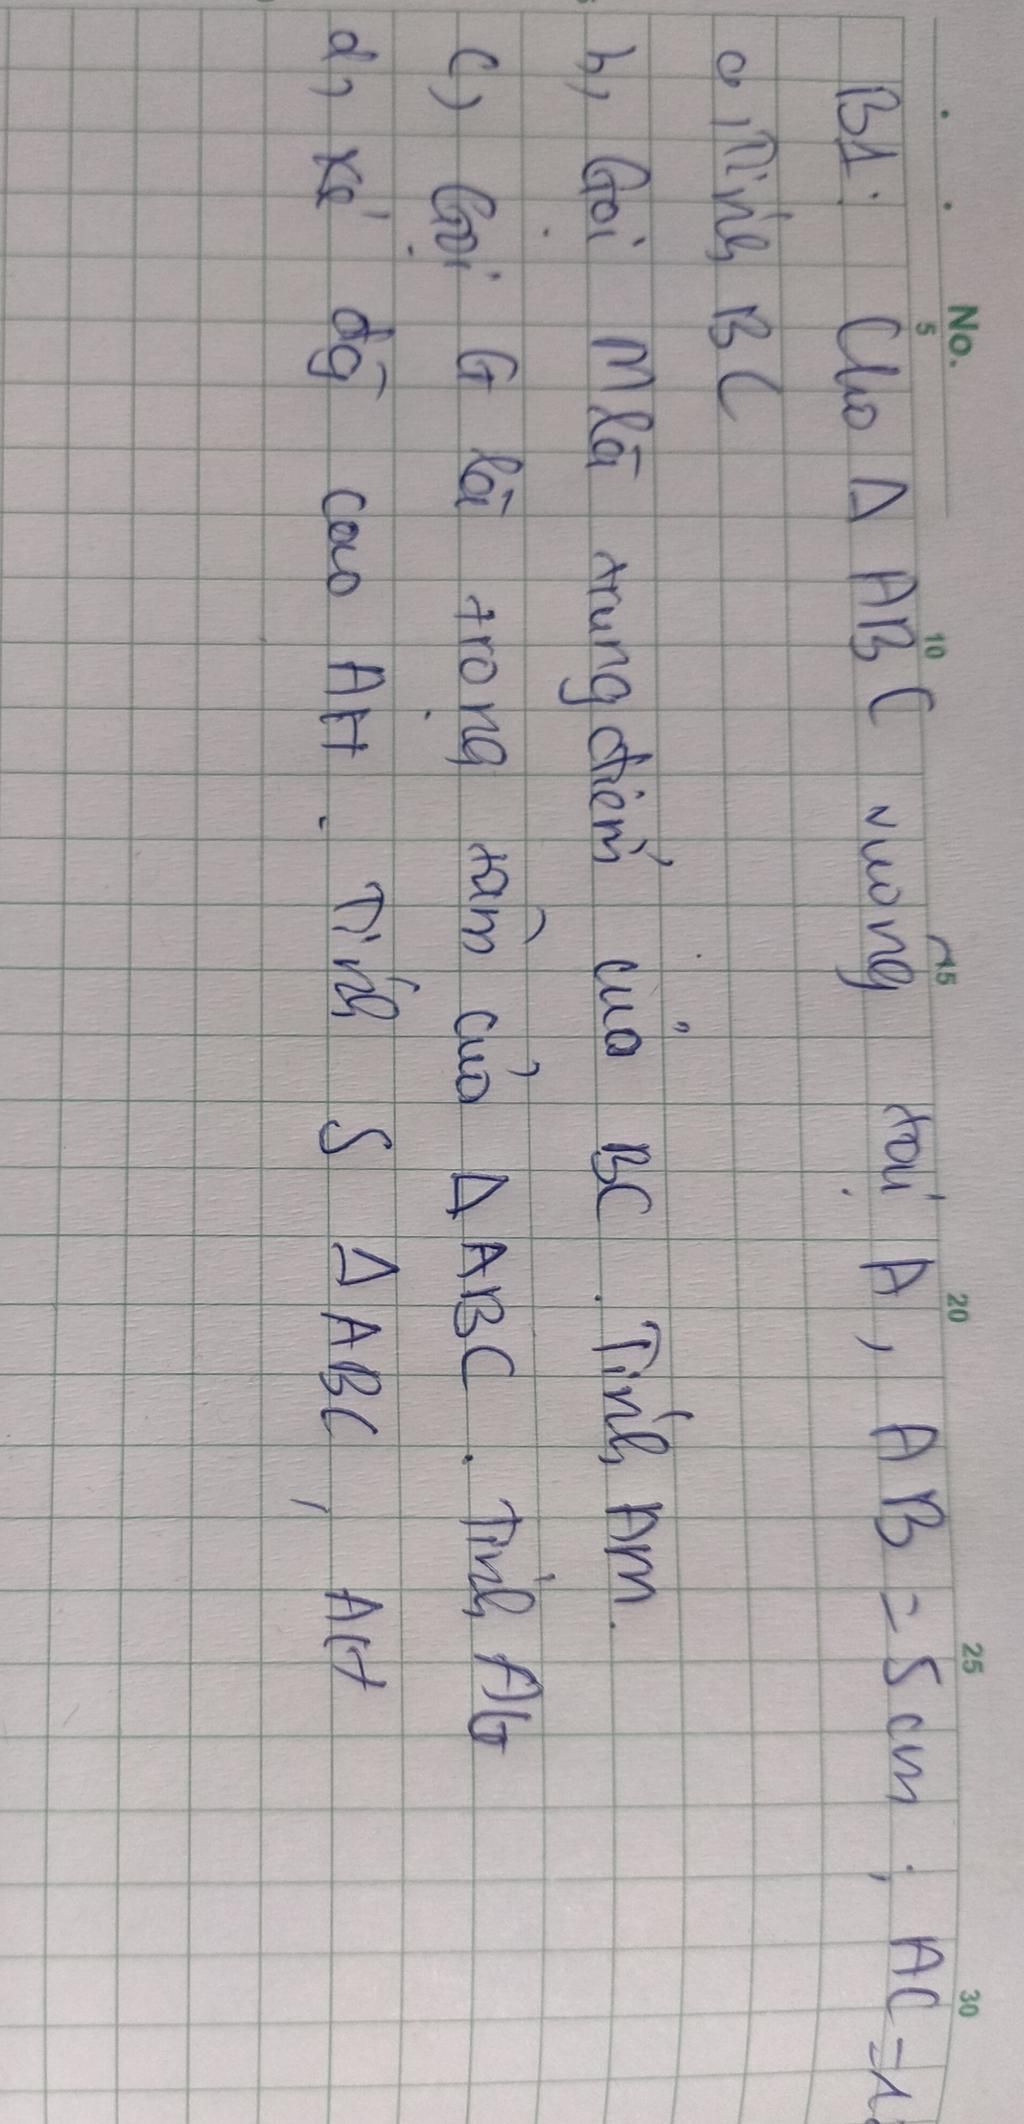 No.
5 10 15 20 25 30
B1: Cho Δ ABC vuông tại A, AB = 5cm; AC = 1
a, Tính BC
b, Gọi M là trung điểm của BC. Tính AM.
c, Gọi G là trọng tâm của Δ ABC. Tính AG
d, Kẻ đg cao AH. Tính S Δ ABC, AH